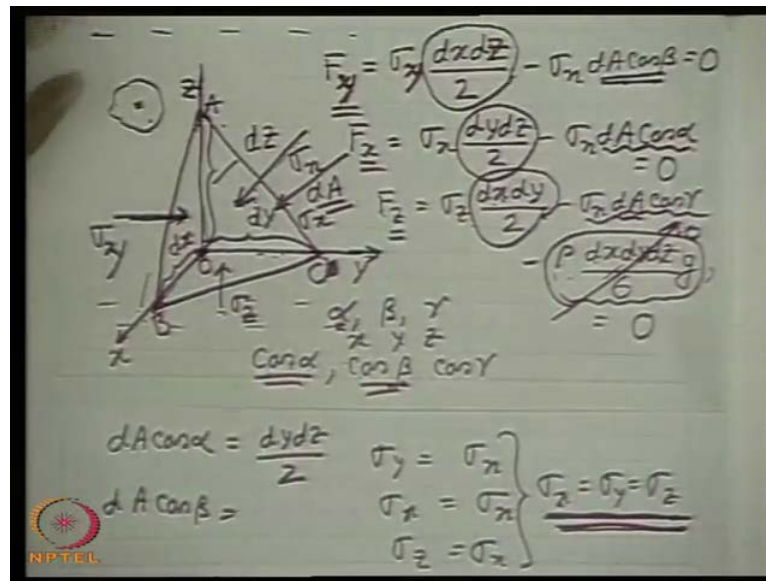 F_xy = σ_xy (dxdz/2) - σ_n dA cosβ = 0
F_x = σ_x (dydz/2) - σ_n dA cosα = 0
F_z = σ_z (dxdy/2) - σ_n dA cosγ
- ρ (dxdydz/6) g, 0
= 0
z
A
dz
σ_n
dA
σ_x
dy
σ_xy
dx
O
C
y
σ_z
B
x
α, β, γ
x y z
cosα, cosβ cosγ
dA cosα = dydz/2
dA cosβ =
σ_y = σ_n
σ_x = σ_n
σ_z = σ_n
σ_x = σ_y = σ_z
NPTEL